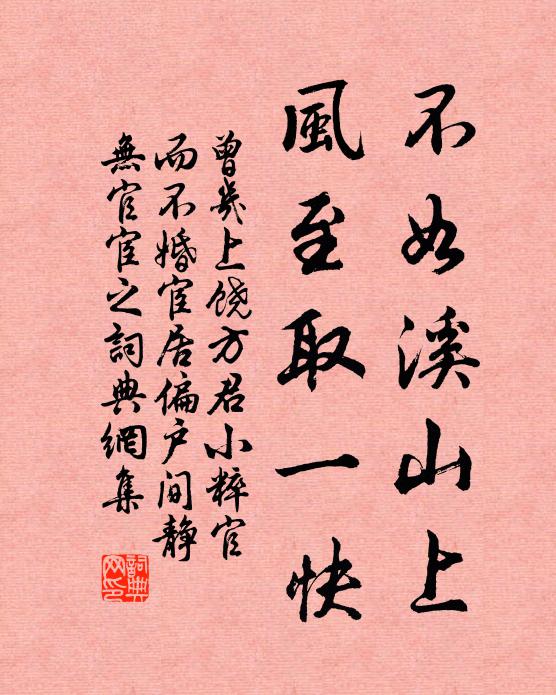 不如溪山上
風至取一快
曾幾上饶方君小粹官
而不婚宦居偏户间静
無官宦之詞典網集
詞典网印